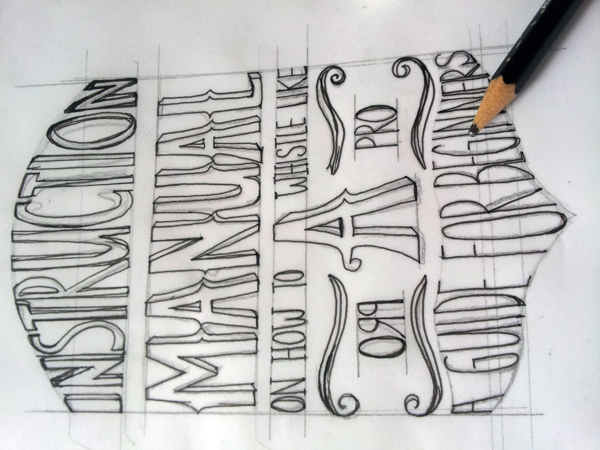 INSTRUCTION
MANUAL
ON HOW TO WHISTLE LIKE
A PRO
A GUIDE FOR BEGINNERS